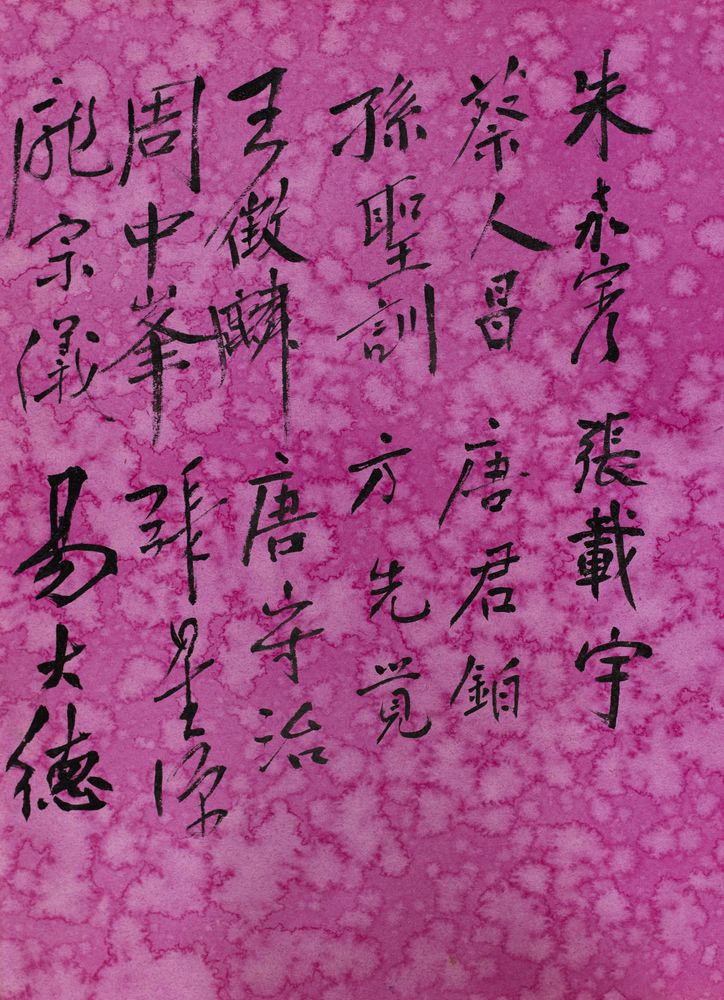 朱嘉賓 張載宇
蔡人昌 唐君鉑
孫聖訓 方先覚
王徵麟 唐守治
周中峯 張星源
龐宗儀 易大德